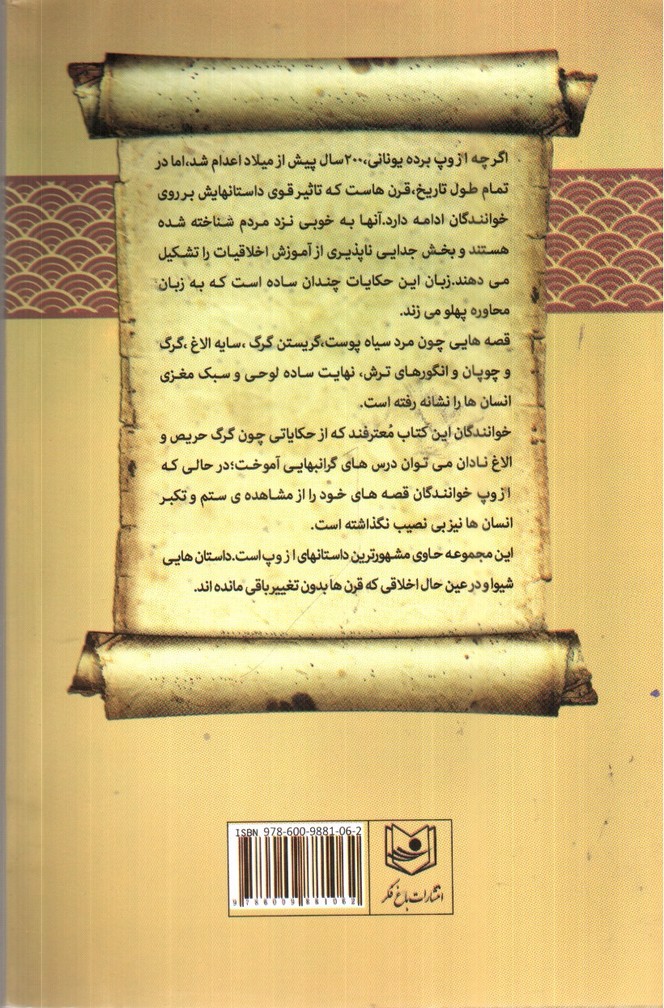 اگرچه ازوپ برده یونانی،۲۰۰سال پیش از میلاد اعدام شد،اما در
تمام طول تاریخ،قرن هاست که تاثیر قوی داستانهایش بر روی
خوانندگان ادامه دارد.آنها به خوبی نزد مردم شناخته شده
هستند و بخش جدایی ناپذیری از آموزش اخلاقیات را تشکیل
می دهند.زبان این حکایات چندان ساده است که به زبان
محاوره پهلو می زند.
قصه هایی چون مرد سیاه پوست،گریستن گرگ ،سایه الاغ ،گرگ
و چوپان و انگورهای ترش، نهایت ساده لوحی و سبک مغزی
انسان ها را نشانه رفته است.
خوانندگان این کتاب مُعترفند که از حکایاتی چون گرگ حریص و
الاغ نادان می توان درس های گرانبهایی آموخت؛در حالی که
ازوپ خوانندگان قصه های خود را از مشاهده ی ستم و تکبر
انسان ها نیز بی نصیب نگذاشته است.
این مجموعه حاوی مشهورترین داستانهای ازوپ است.داستان هایی
شیوا و در عین حال اخلاقی که قرن ها بدون تغییر باقی مانده اند.
ISBN 978-600-9881-06-2
9786009881062
انتشارات باغ فکر